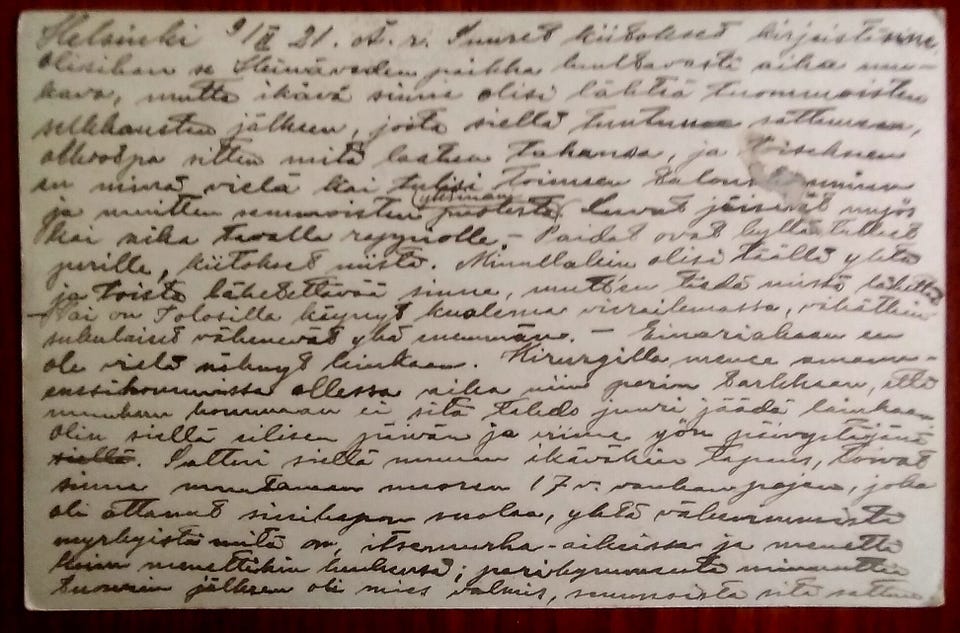 Helsinki 9/II 21. A. r. Suuret kiitokset kirjeistänne,
olisihan se Heinäveden paikka luultavasti aika mu-
kava, mutta ikävä sinne olisi lähteä tuommoisten
selkkausten jälkeen, josta siellä tuntuu sattuneen,
olkoonpa sitten mitä laatua tahansa, ja toisekseen
en minä vielä kai tulisi toimeen talous
ja muitten semmoisten puutteesta. Luvut jäisivät myös
kai aika tavalla rappiolle. – Paidat ovat kyllä tulleet
perille, kiitokset niistä. Minullakin olisi täällä yhtä
ja toista lähetettävää sinne, mutten tiedä mistä lähettää
– Vai on Tolosilla käynyt kuolema vierailemassa, vähätkin
sukulaiset vähenevät yhä enemmän. – Einariakaan en
ole vielä nähnyt laisinkaan. Kirurgilla menee amanu-
enssihommissa ollessa aika niin perin tarkkaan, että
muuhun hommaan ei sitä tahdo juuri jäädä lainkaan,
olin siellä eilisen päivän ja viime yön päivystäjänä
siellä. Sattui siellä muuan ikäväkin tapaus, toivat
sinne muutaman nuoren 17 v. vanhan pojan, joka
oli ottanut sinihapon suolaa, yhtä väkevimmistä
myrkyistä mitä on, itsemurha-aikeissa ja menetti
hän menettikin henkensä; parikymmentä minuuttia
tuonnin jälkeen oli mies valmis, semmoista sitä sattuu